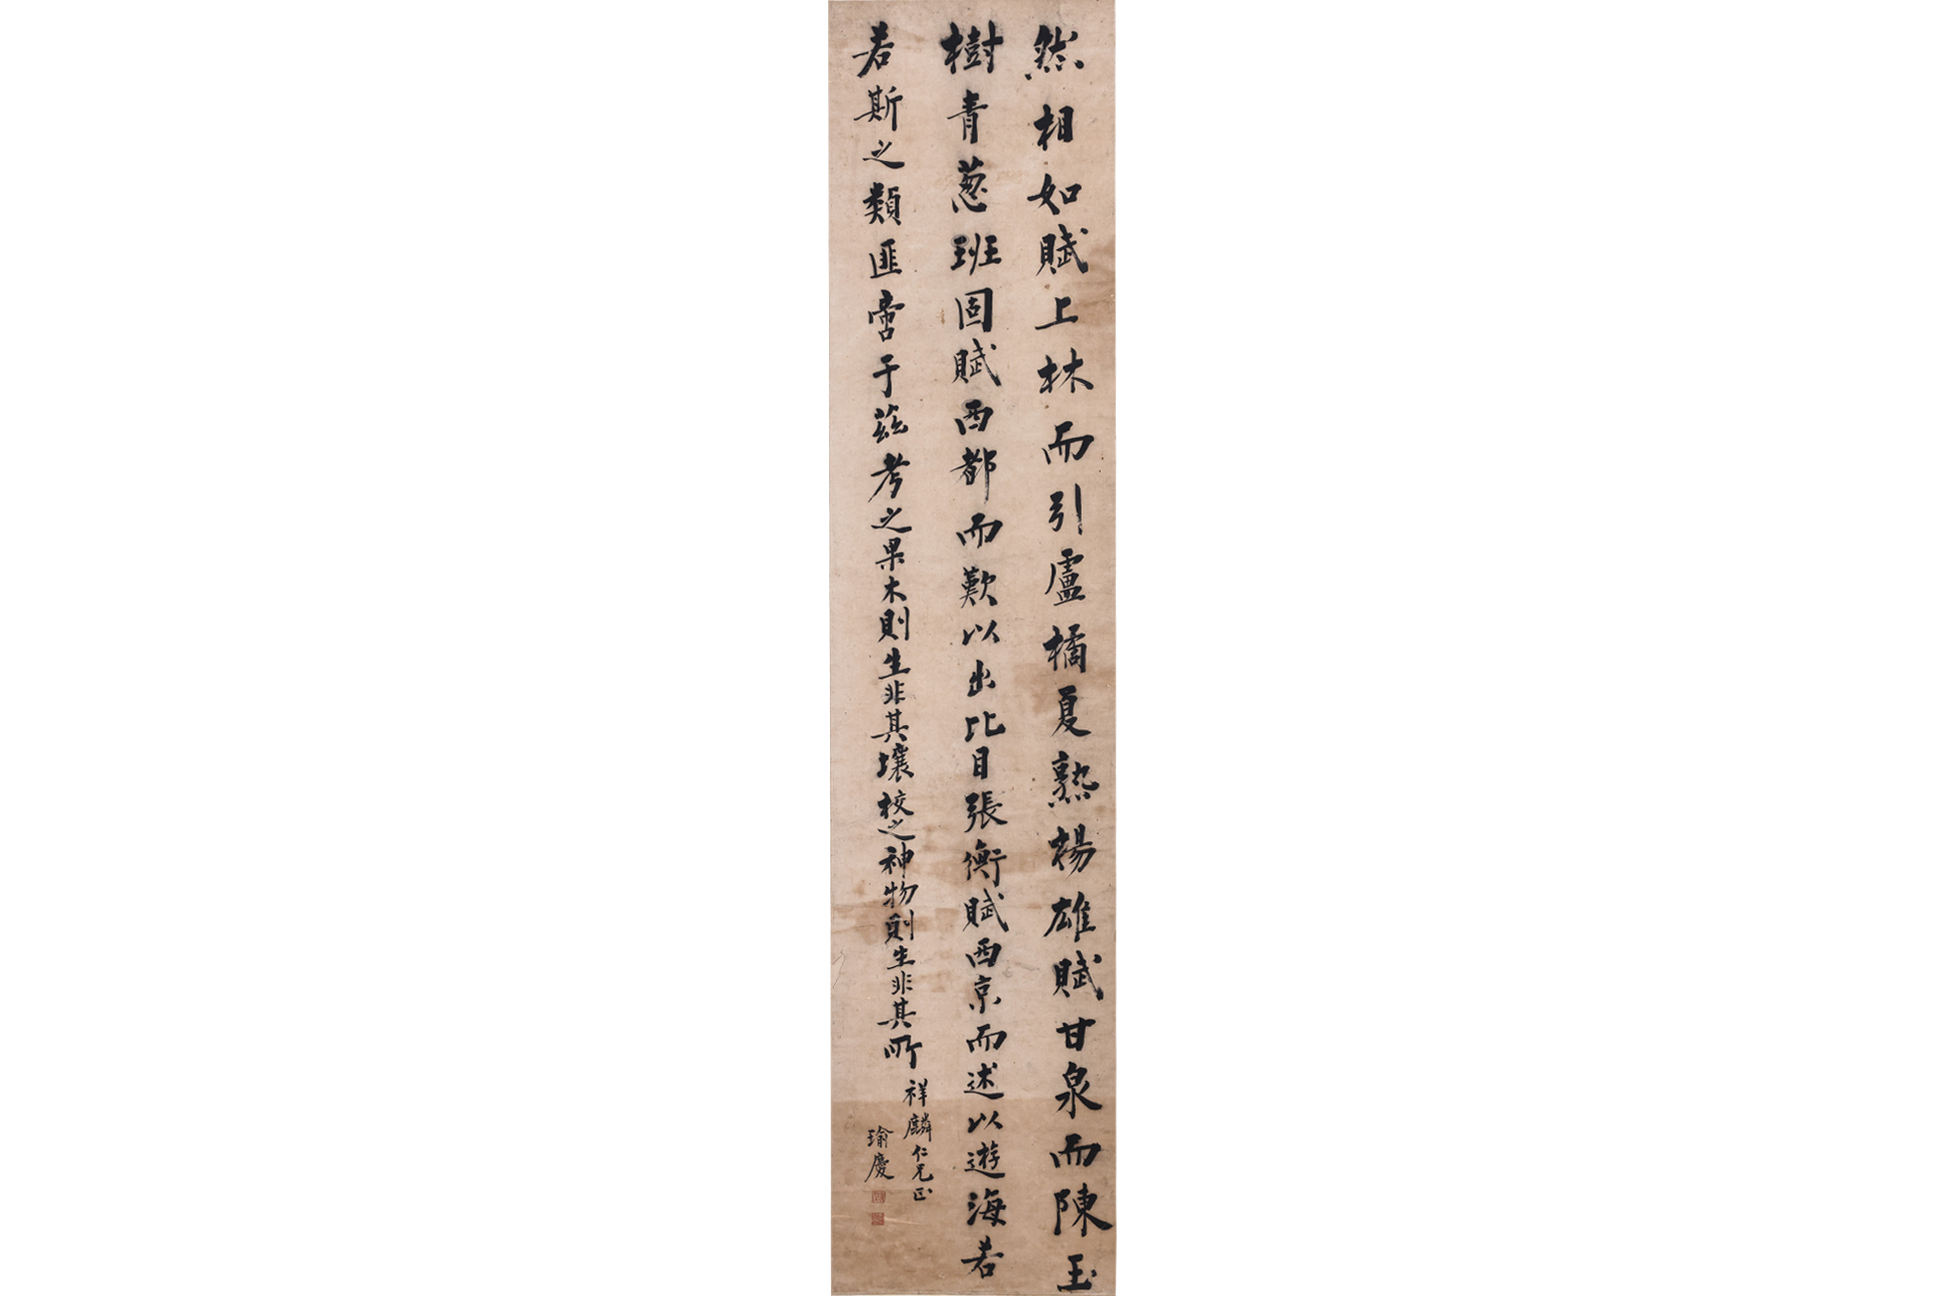 然相如賦上林而引盧橘夏熟楊雄賦甘泉而陳玉
樹青葱班固賦西都而歎以出比目張衡賦西京而述以遊海若
若斯之類匪啻于茲考之果木則生非其壤校之神物則生非其所
祥麟仁兄正
瑜慶